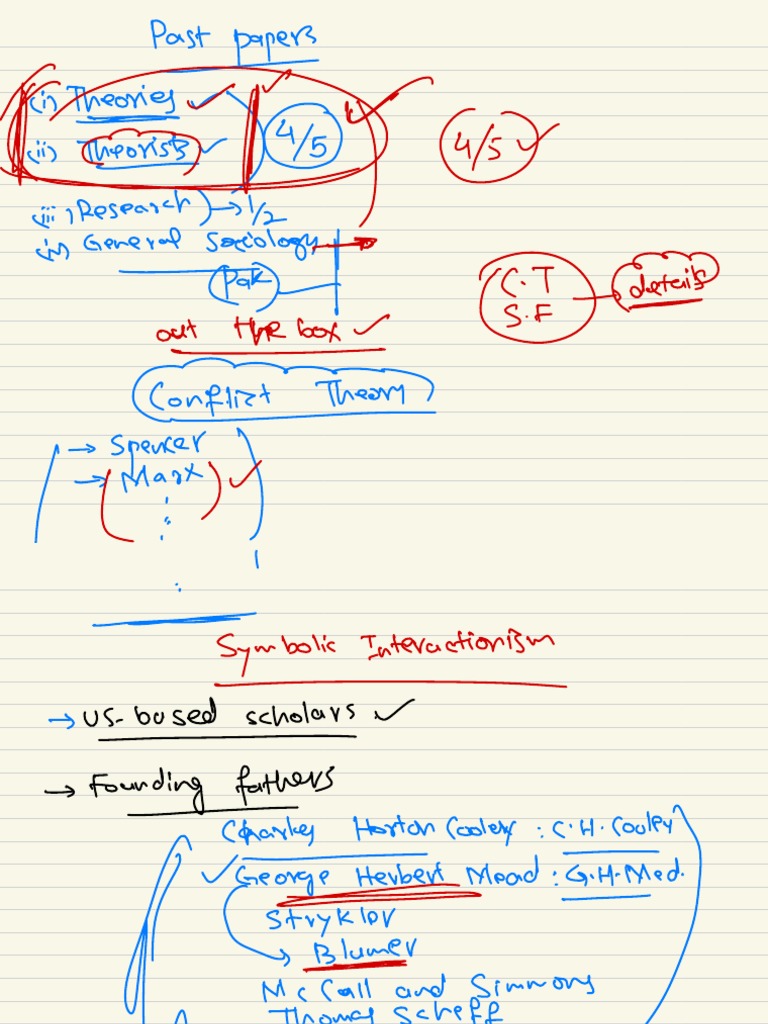 Past papers
(i) Theories
(ii) Theorists
4/5
4/5
(iii) Research → 1/2
(iv) General Sociology
Pak
C.T
S.F
details
out the box
Conflict Theory
→ Spencer
→ Marx
Symbolic Interactionism
→ US-based scholars
→ Founding fathers
Charles Horton Cooley : C.H. Cooley
George Herbert Mead : G.H. Med.
Stryklor
→ Blumer
Mc Call and Simmons
Thomas Scheff